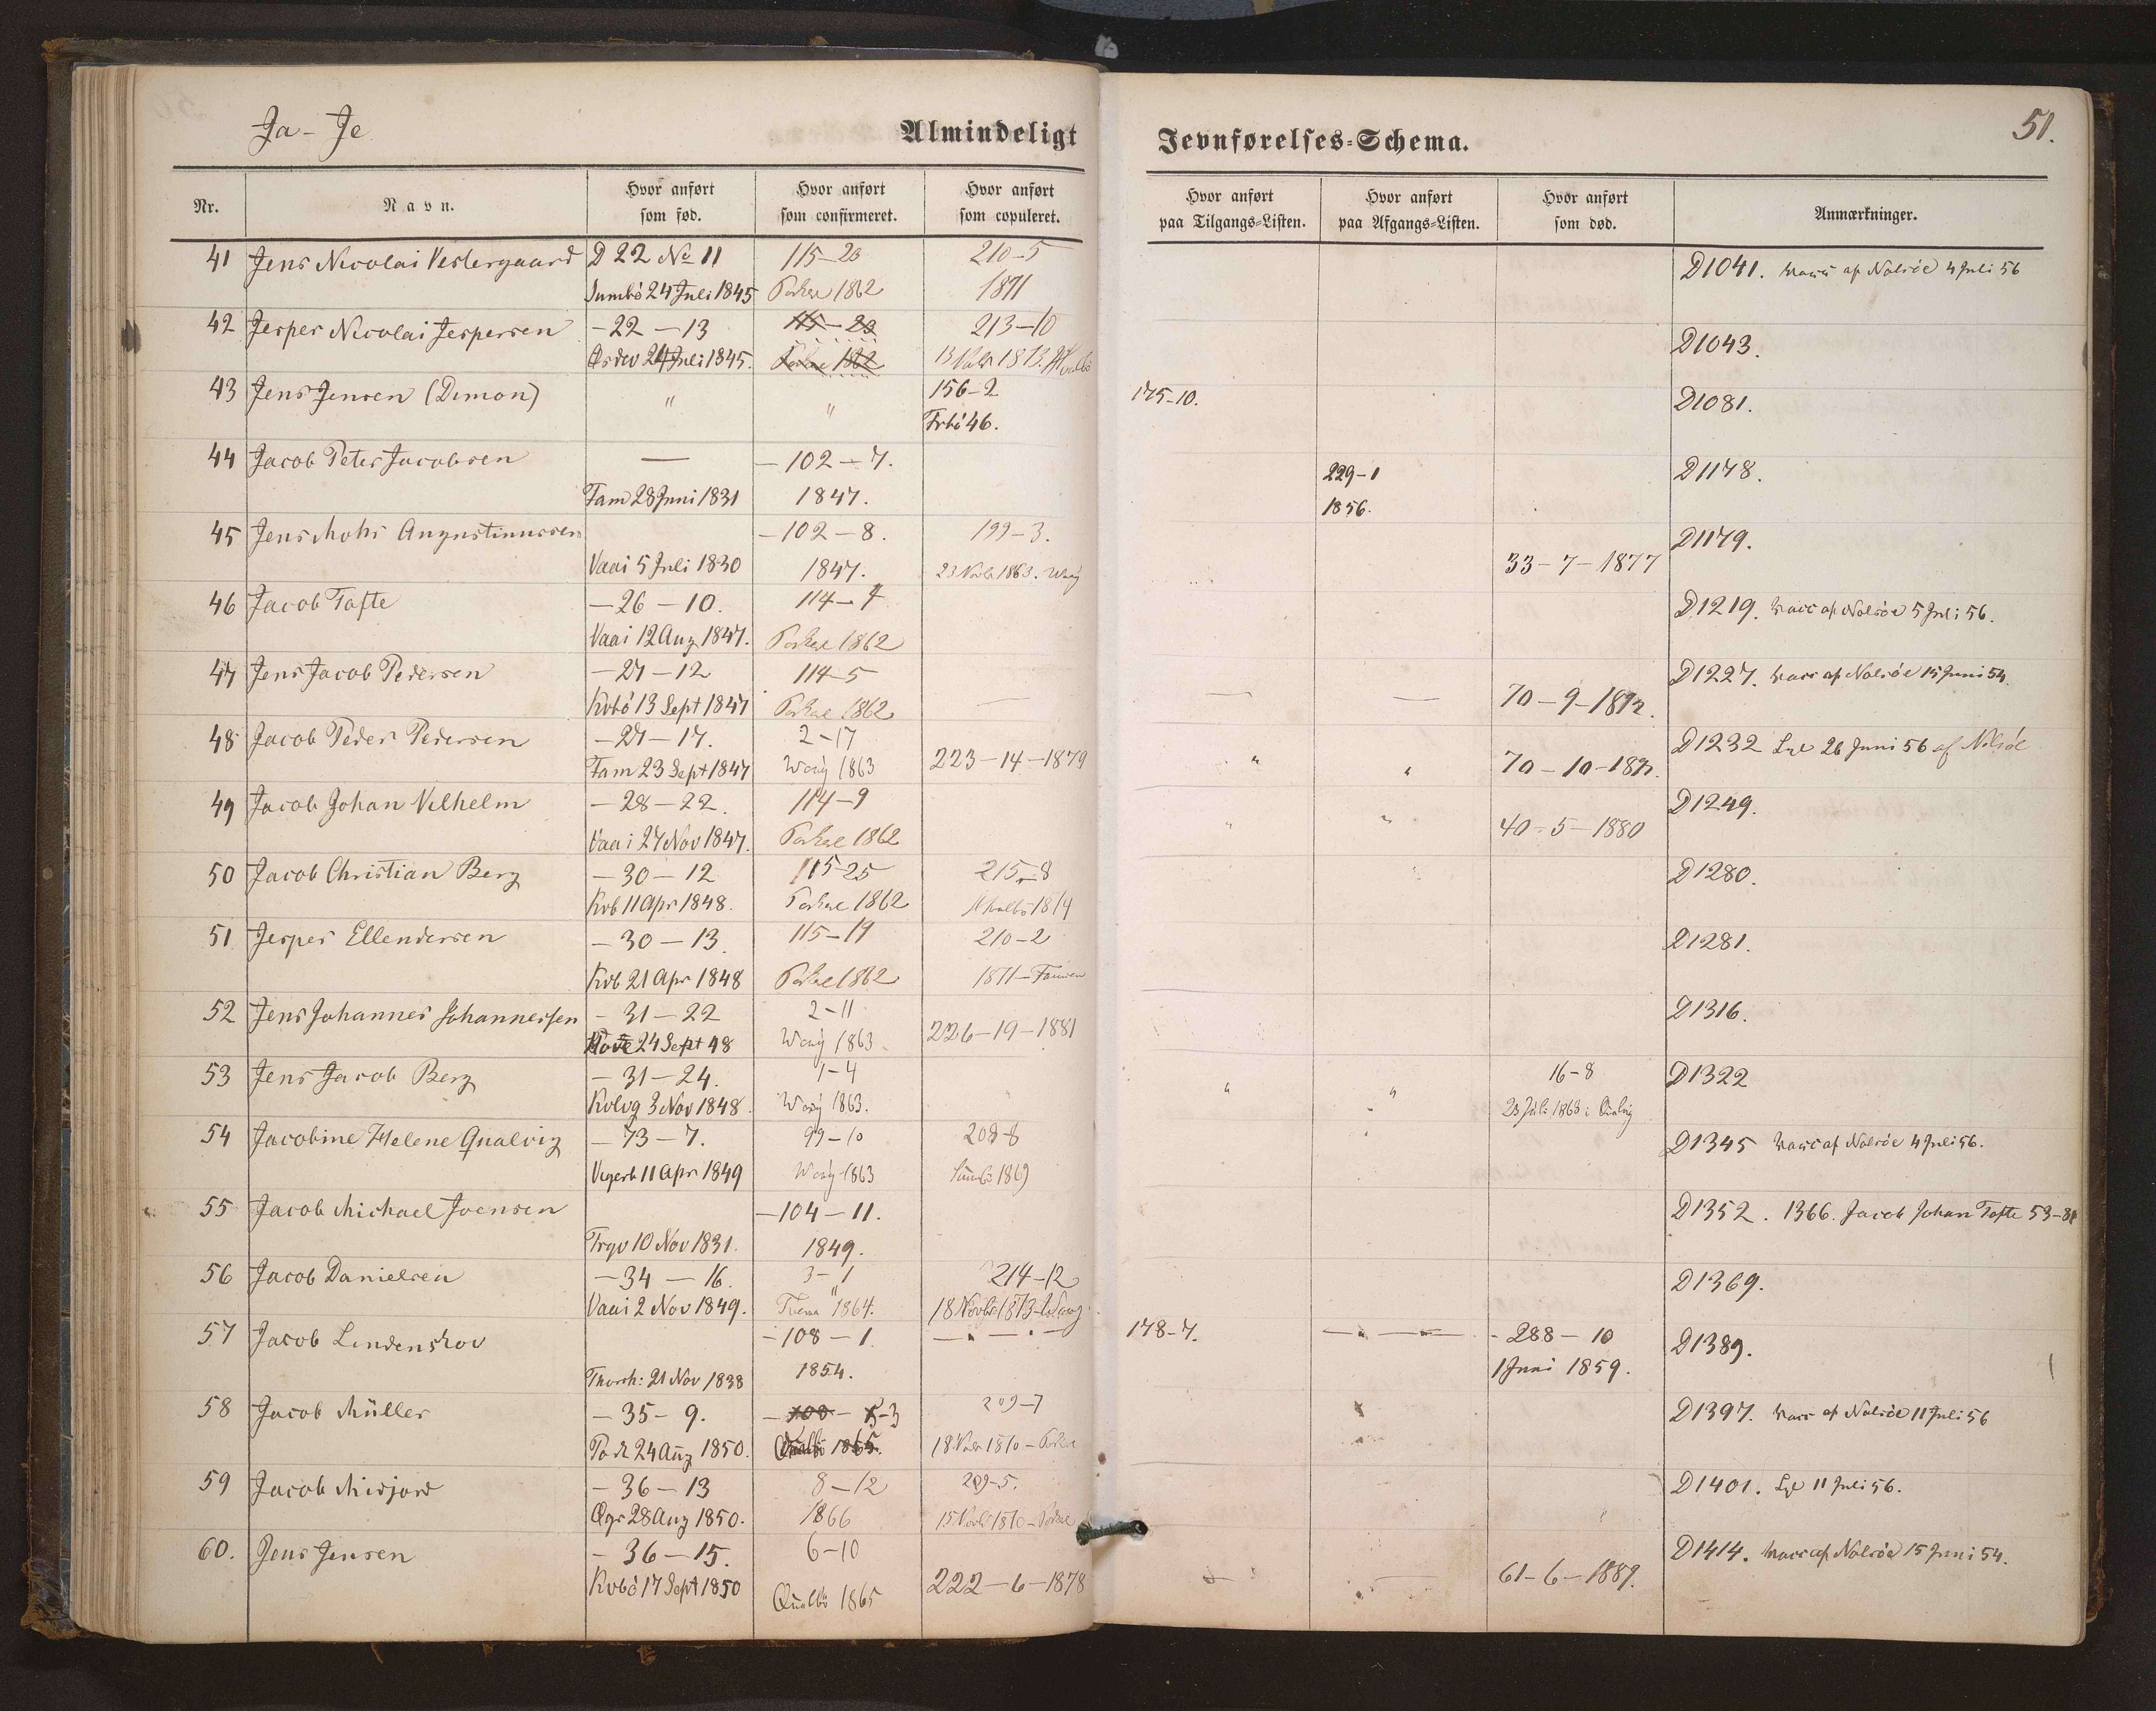 Ja - Je
Almindeligt Jevnførelses-Schema.
51.
Nr. Navn. Hvor anført som fød. Hvor anført som confirmeret. Hvor anført som copuleret. Hvor anført paa Tilgangs-Listen. Hvor anført paa Afgangs-Listen. Hvor anført som død. Anmærkninger.
41 Jens Nicolai Vestergaard D 22 No 11 115-20 210-5 D1041. Vacc af Nolsöe 4 Juli 56
Sumbö 24 Juli 1845 Porkere 1862 1871
42 Jesper Nicolai Jespersen -22-13 115-23 213-10 D1043.
24 Juli 1845. 1862 13 1873.
43 Jens Jensen (Dimon) " " 156-2 175-10. D1081.
Frbö 46.
44 Jacob Peter Jacobsen — -102-7. 229-1 D1178.
Fam 28 Juni 1831 1847. 1856.
45 Jens Mohr Augustinussen -102-8. 199-3. D1179.
Vaai 5 Juli 1830 1847. 23 Novbr 1863. Waag 33-7-1877
46 Jacob Tofte -26-10. 114-7 D1219. Vacc af Nolsöe 5 Juli 56.
Vaai 12 Aug 1847. Porkere 1862
47 Jens Jacob Pedersen -27-12 114-5 D1227. Vacc af Nolsöe 15 Juni 54.
Kvbö 13 Sept 1847 Porkere 1862 — — — 70-9-1892.
48 Jacob Peder Pedersen -27-17. 2-17 D1232 26 Juni 56 af Nolsöe
Fam 23 Sept 1847 Waag 1863 223-14-1879 " " 70-10-1892.
49 Jacob Johan Vilhelm -28-22. 114-9 D1249.
Vaai 27 Nov 1847. Porkere 1862 " " 40-5-1880
50 Jacob Christian Berg -30-12 115-25 215-8 D1280.
Kvb 11 Apr 1848. Porkere 1862 Hvalbö 1874
51 Jesper Ellendersen -30-13 115-19 210-2 D1281.
Kvb 21 Apr 1848 Porkere 1862 1871 - Famien
52 Jens Johannes Johannessen -31-22 2-11 D1316.
24 Sept 48 Waag 1863 226-19-1881
53 Jens Jacob Berg -31-24. 1-4 16-8 D1322
Kvlvg 3 Nov 1848. Waag 1863. " " 23 Juli 1868 i Qualvig
54 Jacobine Helene Qualvig -73-7. 99-10 208-8 D1345 Vacc af Nolsöe 4 Juli 56.
11 Apr 1849 Waag 1863 Sumbö 1869
55 Jacob Michael Joensen -104-11. D1352. 1366. Jacob Johan Tofte 53-81
Trgv 10 Nov 1831. 1849.
56 Jacob Danielsen -34-16. 3-1 214-12 D1369.
Vaai 2 Nov 1849. 1864. 18 Novbr 1873 - Waag
57 Jacob Lindenskov -108-1. 178-7. -288-10 D1389.
Thorsh: 21 Nov 1838 1854. 1 Juni 1859.
58 Jacob Müller -35-9. -108- 5-3 209-7 D1397. Vacc af Nolsöe 11 Juli 56
Pork 24 Aug 1850. Qualbö 1865. 18 Novbr 1870 - Porkere
59 Jacob Misjord -36-13 8-12 209-5. D1401. 11 Juli 56.
28 Aug 1850. 1866 15 Novbr 1870 - Porkere
60. Jens Jensen -36-15. 6-10 D1414. Vacc af Nolsöe 15 Juni 54.
Kvbö 17 Sept 1850 Qualbö 1865 222-6-1878 — — 61-6-1889.